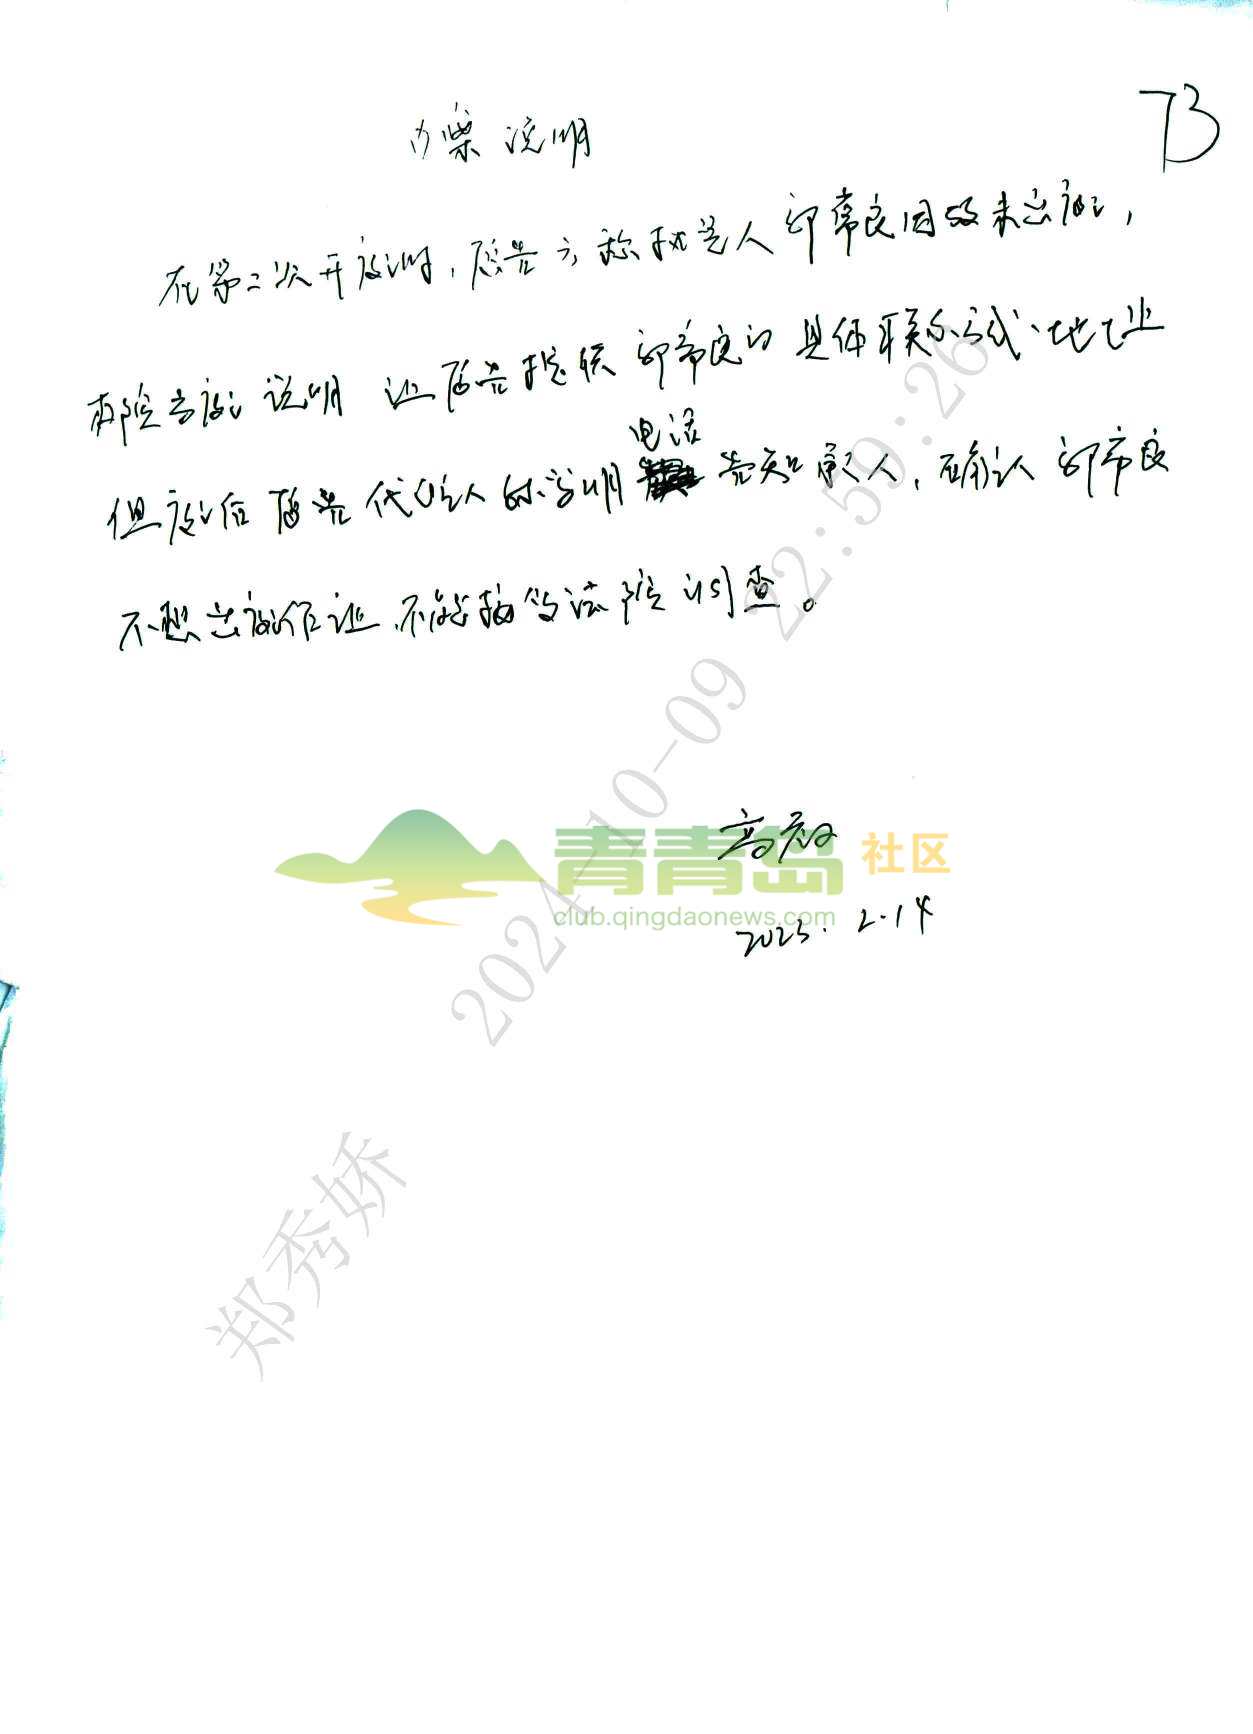 73
办案说明
在第二次开庭时，原告方称执笔人邵常良因故未出庭，
本院当庭说明让原告提供邵常良的具体联系方式、地址
但庭后原告代理人陈学明电话告知承办人，确认邵常良
不想出庭作证，不能接受法院调查。
高
2023.2.14
青青岛社区
club.qingdaonews.com
2024-10-09 22:59:26
郑秀娇